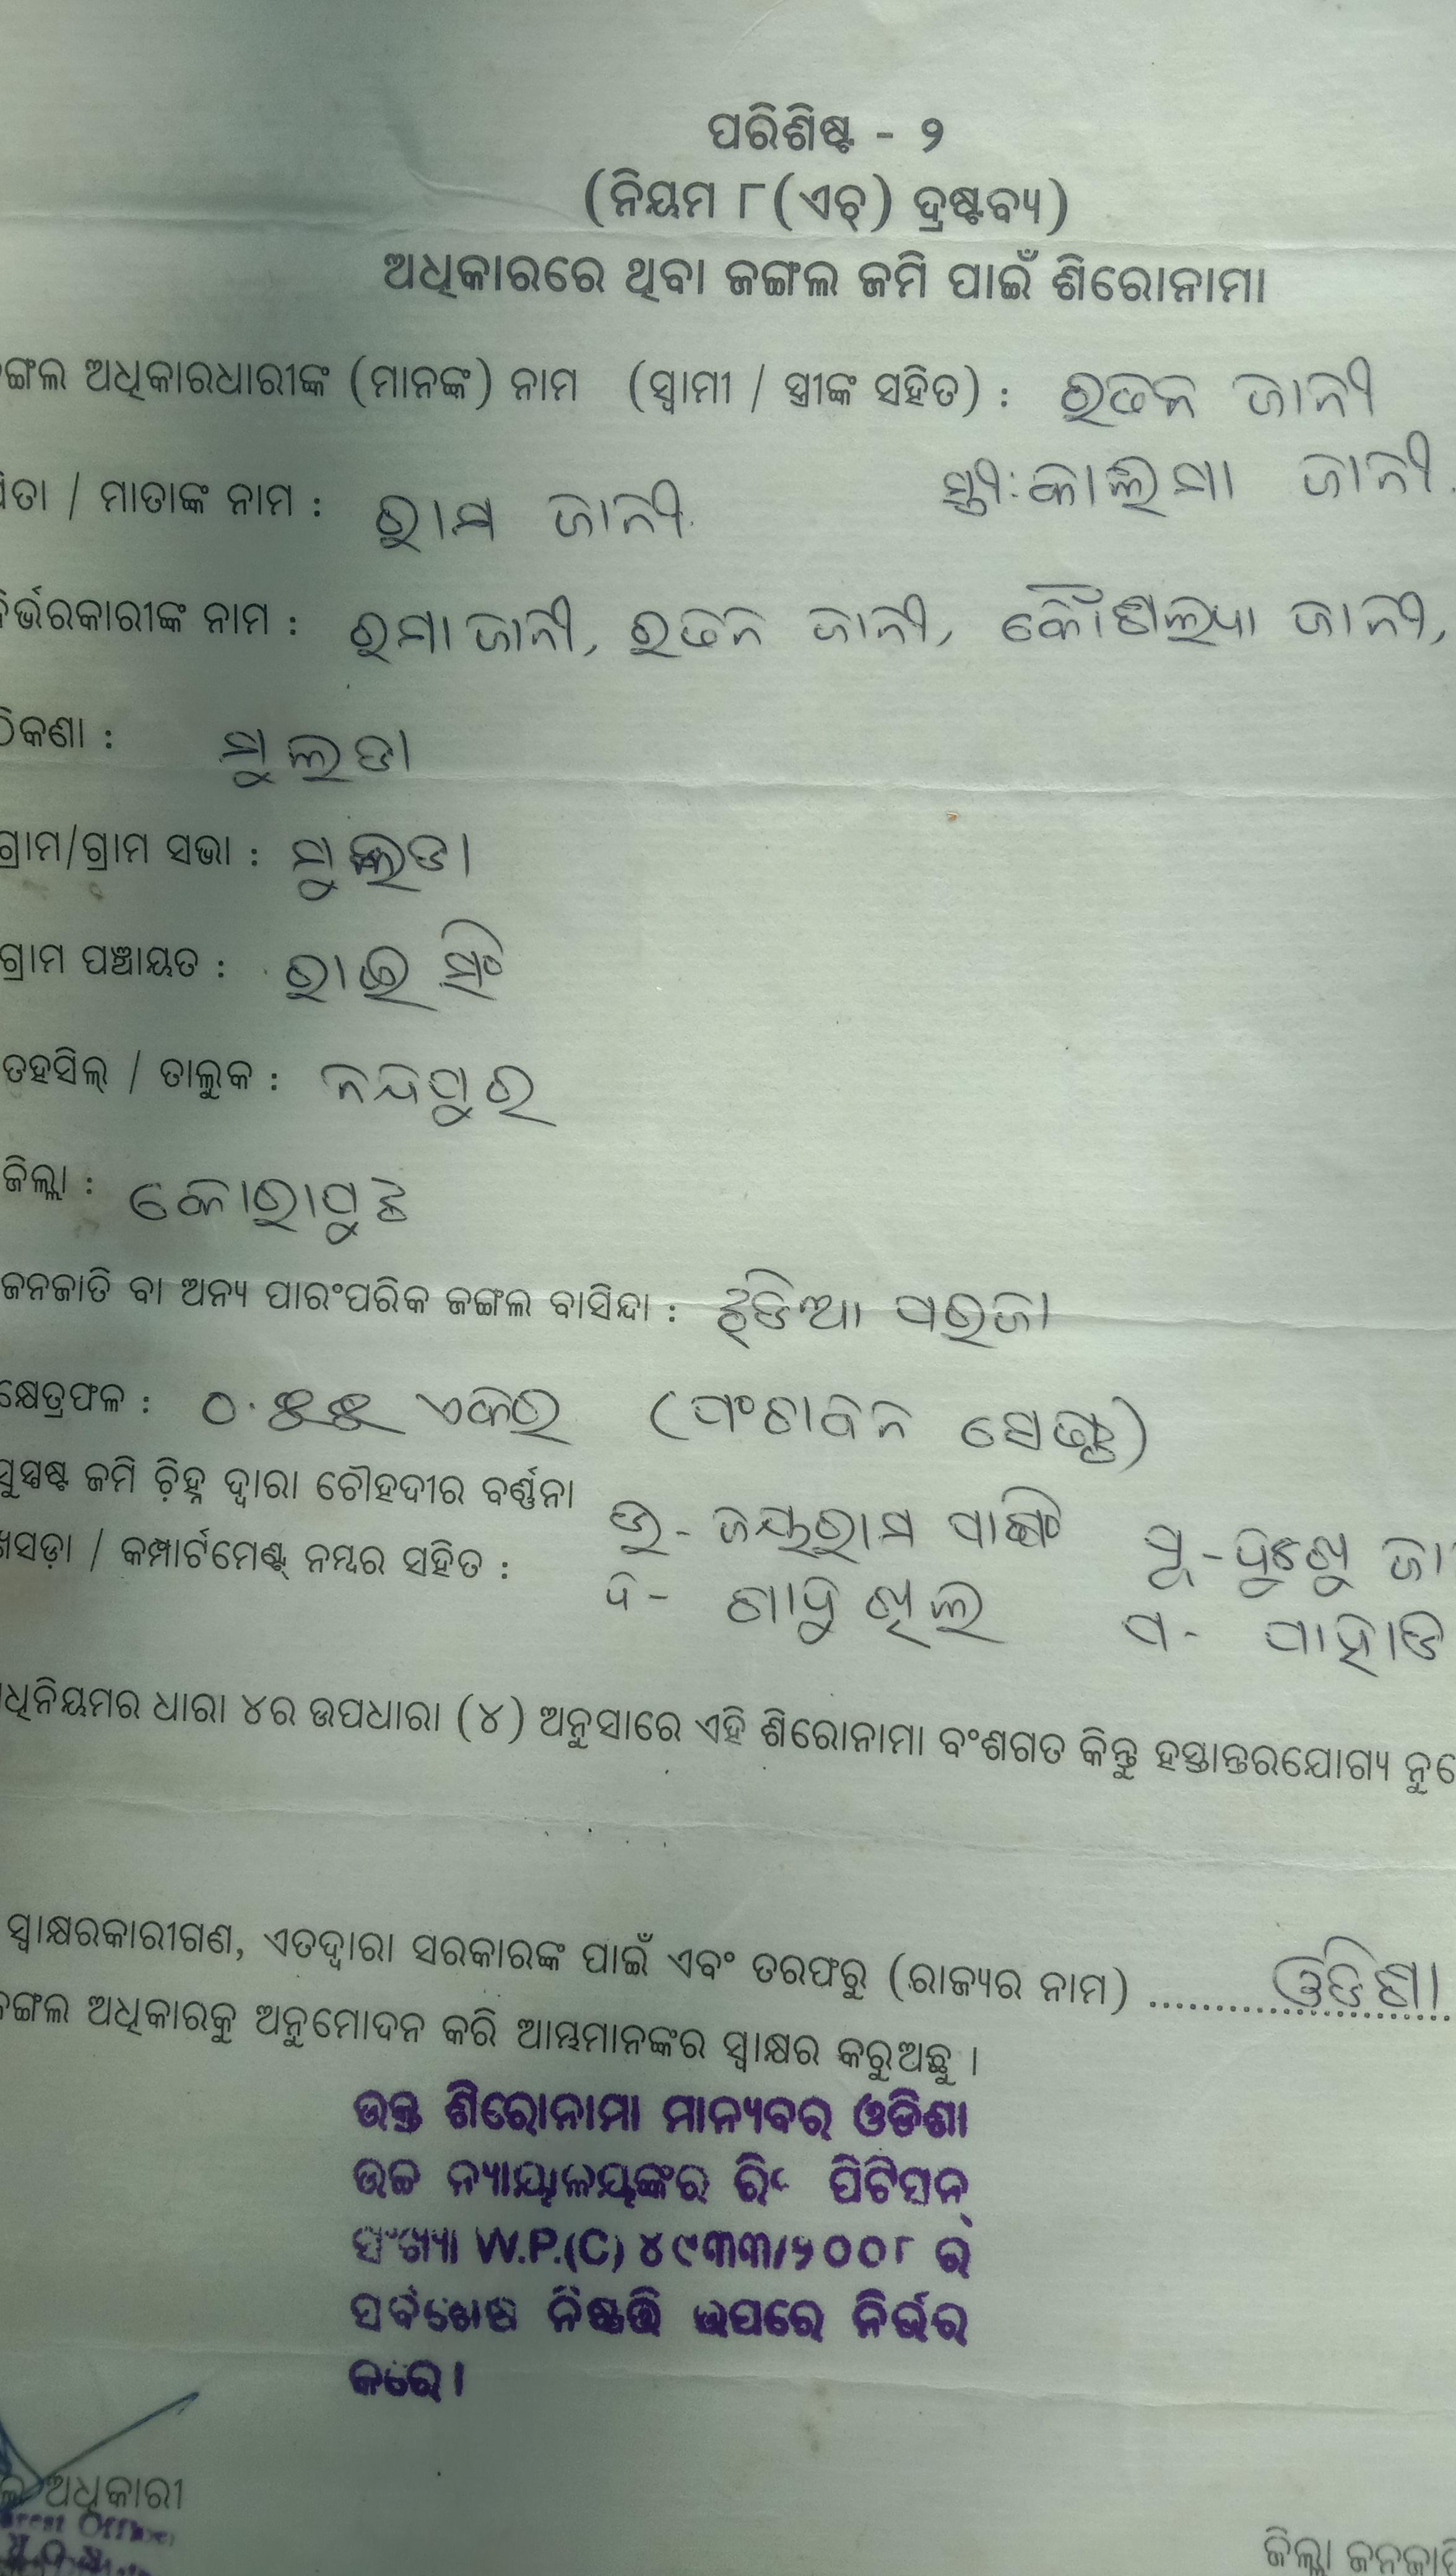 ପରିଶିଷ୍ଟ - ୨
(ନିୟମ ୮(ଏଚ୍) ଦ୍ରଷ୍ଟବ୍ୟ)
ଅଧିକାରରେ ଥିବା ଜଙ୍ଗଲ ଜମି ପାଇଁ ଶିରୋନାମା
ଙ୍ଗଲ ଅଧିକାରଧାରୀଙ୍କ (ମାନଙ୍କ) ନାମ (ସ୍ୱାମୀ / ସ୍ତ୍ରୀଙ୍କ ସହିତ) : ରତନ ଜାନୀ
ସ୍ତ୍ରୀ: ଜାନୀ.
ପିତା / ମାତାଙ୍କ ନାମ : ରାମ ଜାନୀ.
ନିର୍ଭରକାରୀଙ୍କ ନାମ : ରମା ଜାନୀ, ରତନ ଜାନୀ, କୌଶଲ୍ୟା ଜାନୀ,
ଠିକଣା : ମୁଲଡା
ଗ୍ରାମ/ଗ୍ରାମ ସଭା : ମୁଲଡା
ଗ୍ରାମ ପଞ୍ଚାୟତ : ରାଇସିଂ
ତହସିଲ୍ / ତାଲୁକ : ନନ୍ଦପୁର
ଜିଲ୍ଲା : କୋରାପୁଟ
ଜନଜାତି ବା ଅନ୍ୟ ପାରଂପରିକ ଜଙ୍ଗଲ ବାସିନ୍ଦା : ପରଜା
କ୍ଷେତ୍ରଫଳ : ୦.୫୫ ଏକର (ପଂଚାବନ
ସୁସ୍ପଷ୍ଟ ଜମି ଚିହ୍ନ ଦ୍ୱାରା ଚୌହଦୀର ବର୍ଣ୍ଣନା
ଖସଡ଼ା / କମ୍ପାର୍ଟମେଣ୍ଟ୍ ନମ୍ବର ସହିତ : ଉ - ଜୟରାମ ପାଙ୍ଗି ପୂ -
ଦି - ପ - ପାହାଡ
ଧିନିୟମର ଧାରା ୪ର ଉପଧାରା (୪) ଅନୁସାରେ ଏହି ଶିରୋନାମା ବଂଶଗତ କିନ୍ତୁ ହସ୍ତାନ୍ତରଯୋଗ୍ୟ ନୁହେ
ସ୍ୱାକ୍ଷରକାରୀଗଣ, ଏତଦ୍ୱାରା ସରକାରଙ୍କ ପାଇଁ ଏବଂ ତରଫରୁ (ରାଜ୍ୟର ନାମ) .................... ଓଡିଶା
ଙ୍ଗଲ ଅଧିକାରକୁ ଅନୁମୋଦନ କରି ଆମ୍ଭମାନଙ୍କର ସ୍ୱାକ୍ଷର କରୁଅଛୁ ।
ଉକ୍ତ ଶିରୋନାମା ମାନ୍ୟବର ଓଡିଶା
ଉଚ୍ଚ ନ୍ୟାୟାଳୟଙ୍କର ରିଟ ପିଟିସନ୍
ସଂଖ୍ୟା W.P.(C) ୪୯୩୩/୨୦୦୮ ର
ସର୍ବଶେଷ ନିଷ୍ପତ୍ତି ଉପରେ ନିର୍ଭର
କରେ।
ଅଧିକାରୀ
ଜିଲ୍ଲା ଜନଜାତି